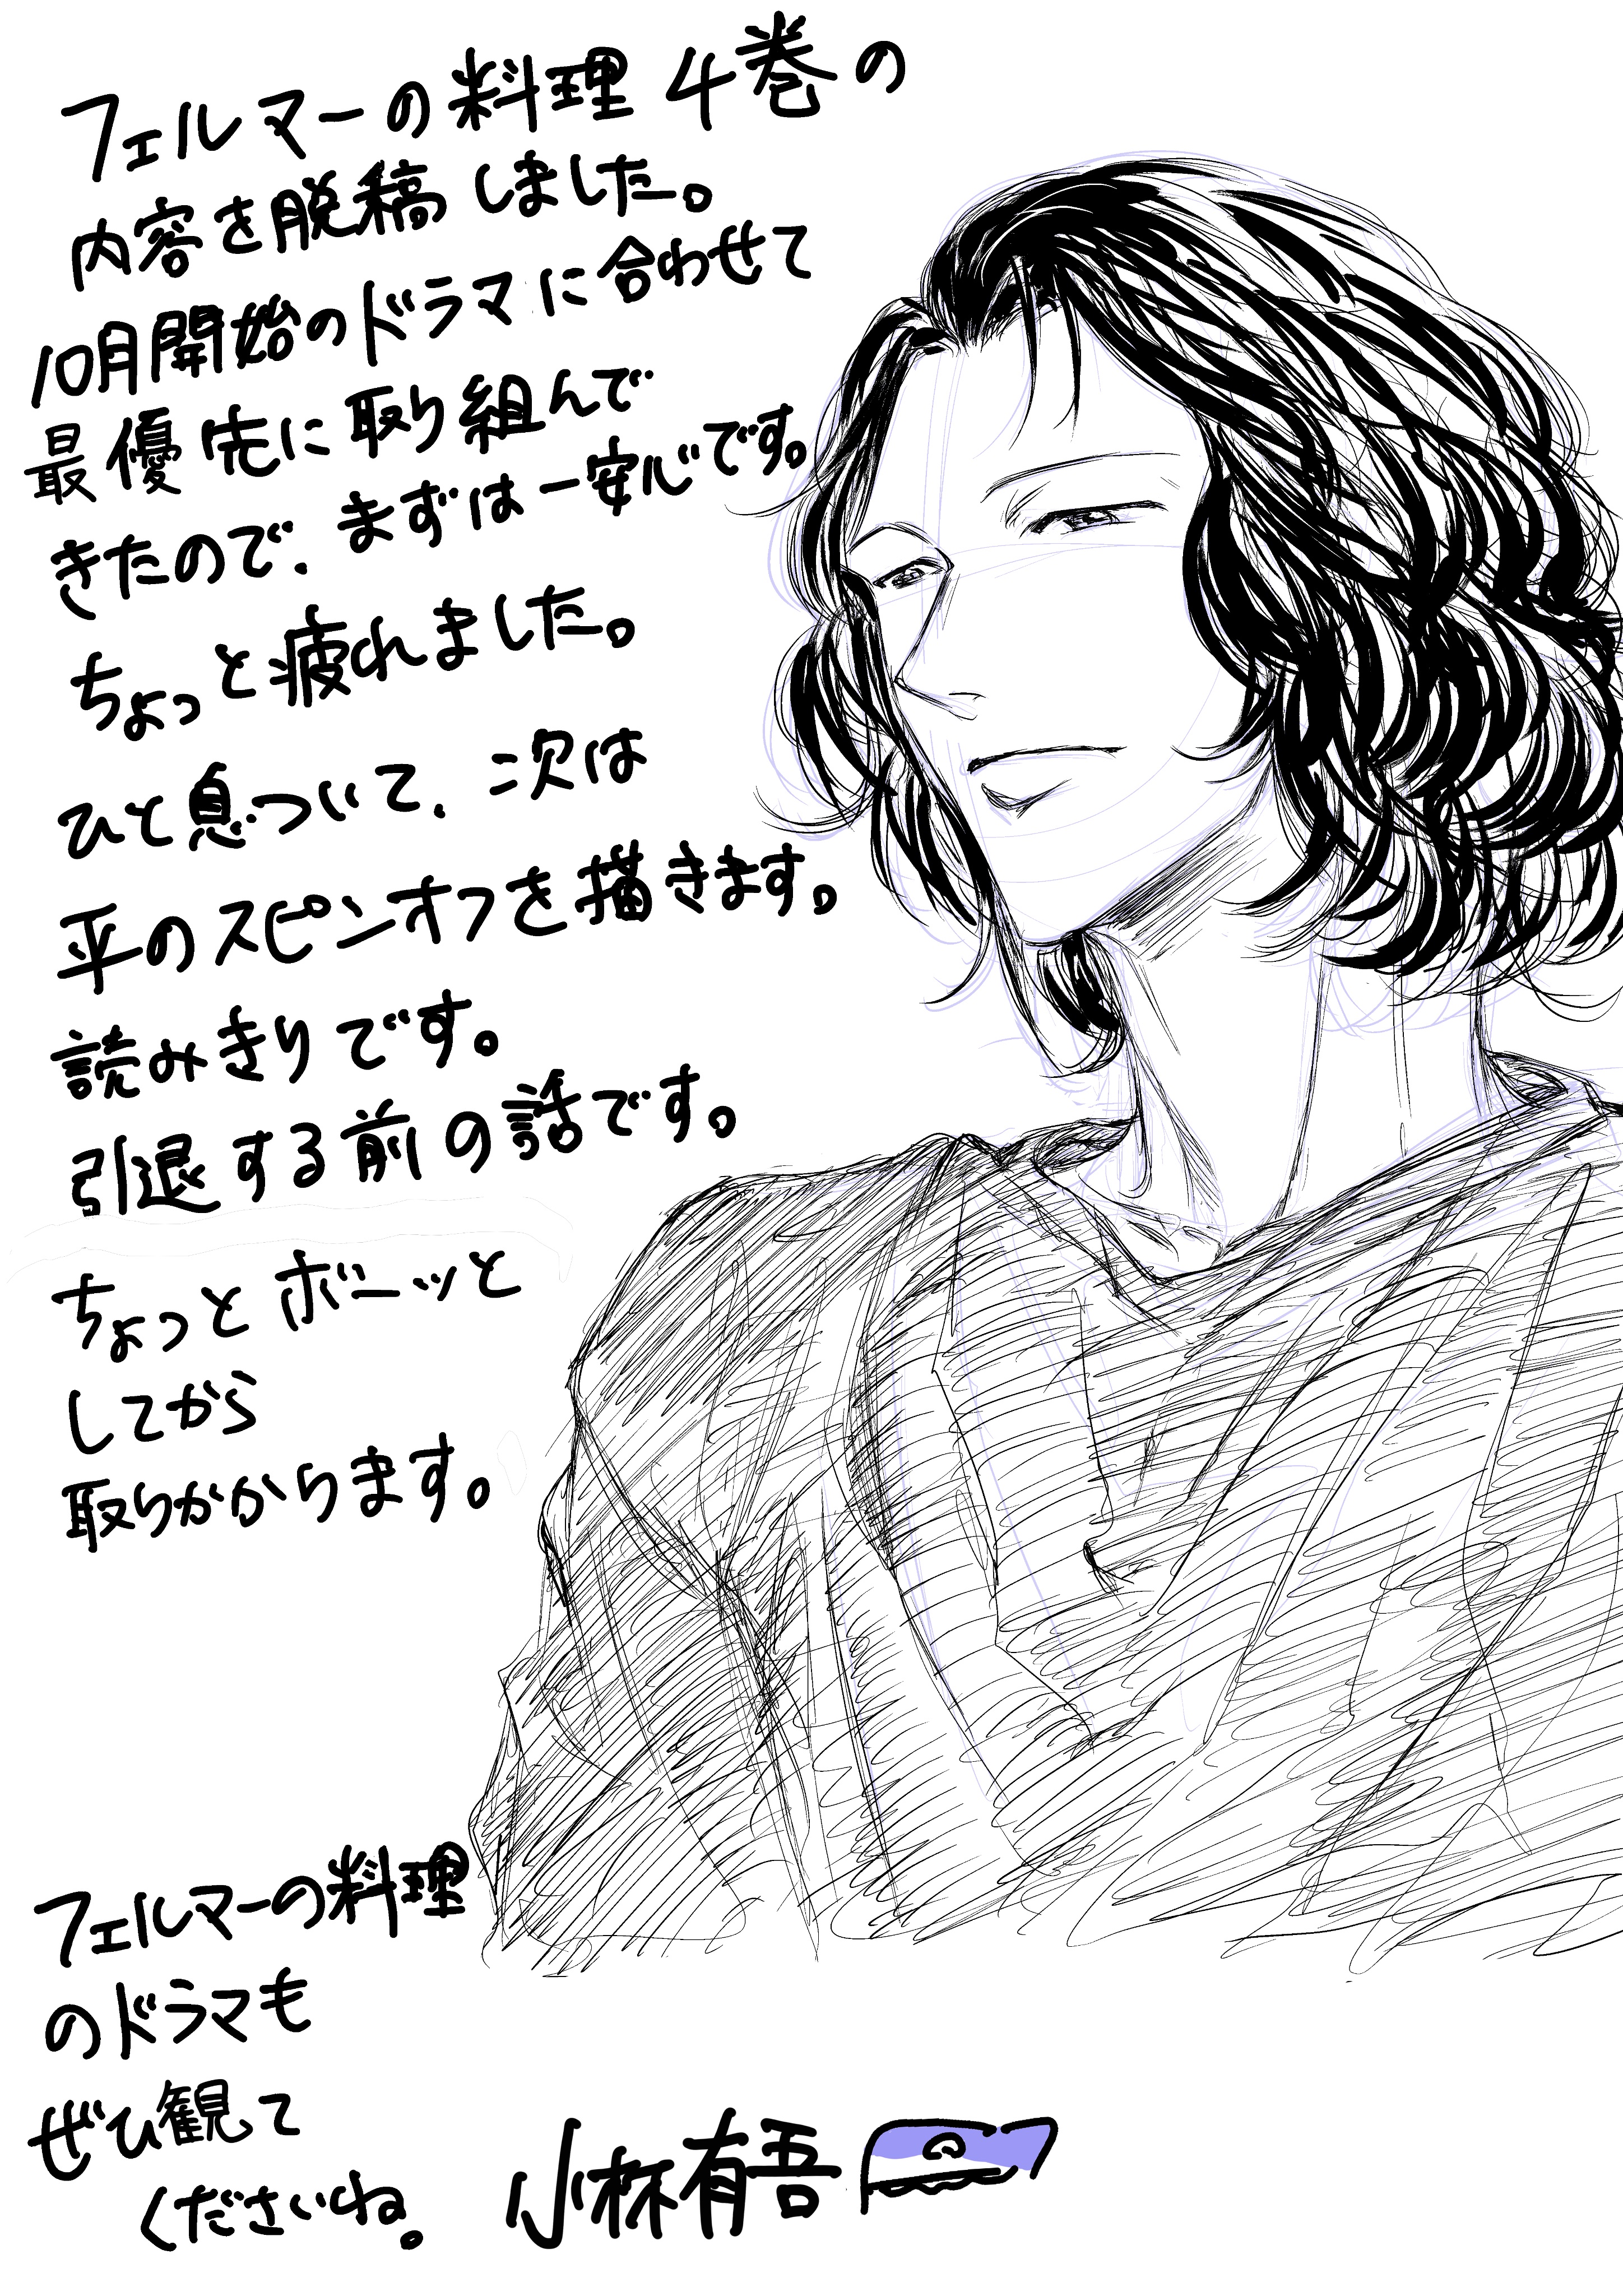 フェルマーの料理 4巻の
内容を脱稿しました。
10月開始のドラマに合わせて
最優先に取り組んで
きたので、まずは一安心です。
ちょっと疲れました。
ひと息ついて、次は
平のスピンオフを描きます。
読みきりです。
引退する前の話です。
ちょっとボーッと
してから
取りかかります。
フェルマーの料理
のドラマも
ぜひ観て
くださいね。
小林有吾